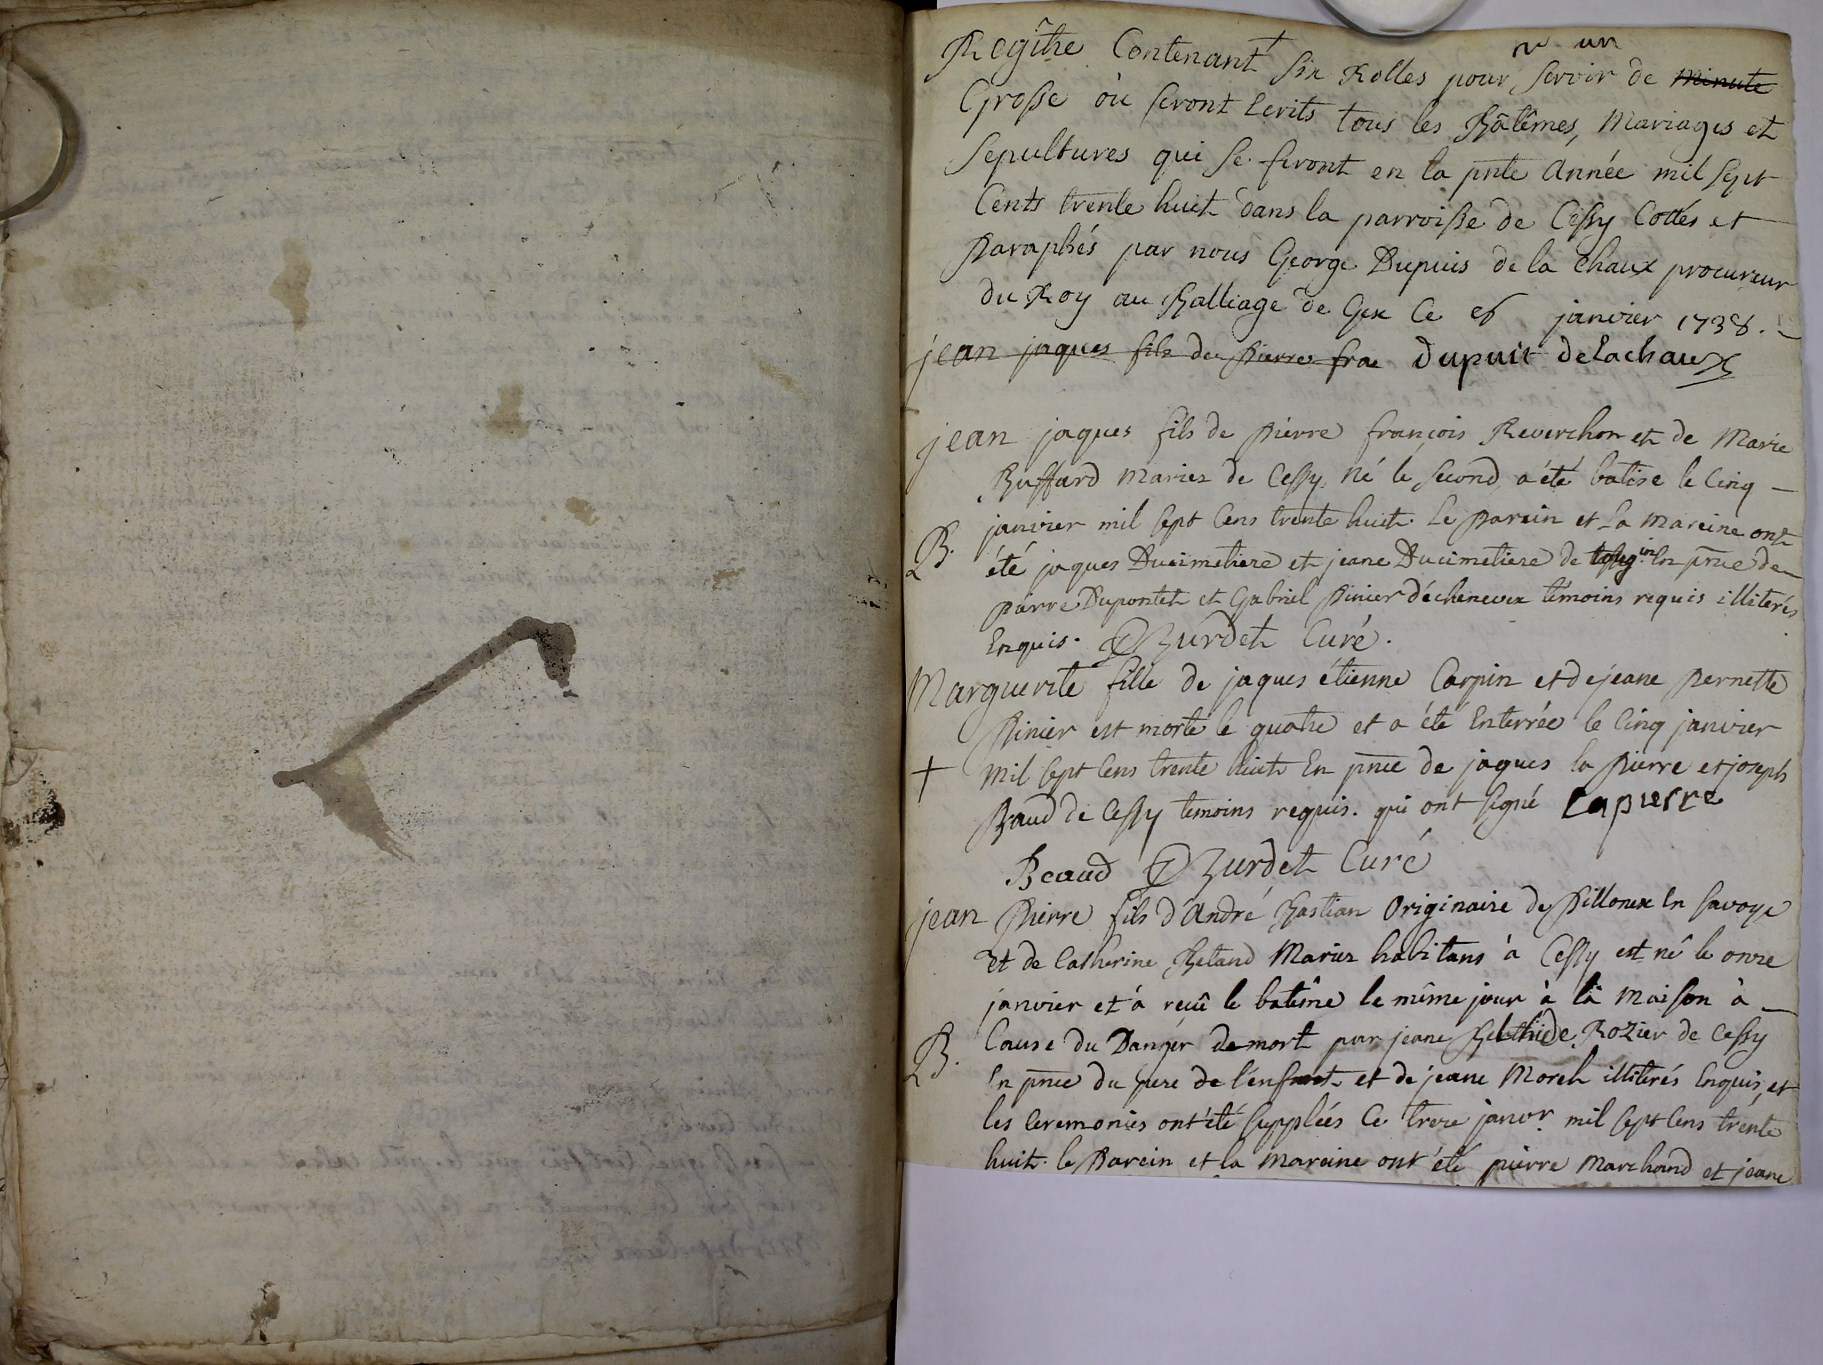 n un
Regître Contenant six Rolles pour servir de minute
Grosse où seront Ecrits tous les Bâtêmes, Mariages et
Sepultures qui se feront en la pnte Année mil sept
Cents trente huit dans la parroisse de Cessy Cottés et
Paraphés par nous George Dupuis de la Chaux procureur
du Roy au Balliage de Gex Ce janvier 1738.
jean jaques fils de Pierre fra dupuit delachaux
jean jaques fils de pierre françois Reverchon et de Marie
Buffard Mariez de Cessy né le second a été batisé le Cinq
janvier mil sept Cens trente huit. Le Parein et La mareine ont
B. été jaques Ducimetiere et jeane Ducimetiere de in En pnce de
pierre Dupontet et Gabriel Pinier d'échenevex témoins requis illiterés
Enquis. Burdet Curé.
Marguerite fille de jaques étienne Carpin et de jeane Pernette
Pinier est morte le quatre et a été Enterrée le Cinq janvier
+ mil sept Cens trente huit En pnce de jaques la Pierre et joseph
Baud de Cessy temoins requis. qui ont signé Lapierre
Beaud Burdet Curé
jean Pierre fils d'André Bastian Originaire de Pillonex En Savoye
et de Catherine Betand Mariez habitans à Cessy est né le onze
janvier et a reçû le batême le même jour à la Maison à
Cause du Danger de mort par jeane Rozier de Cessy
B. En pnce du pere de l'enfant et de jeane Moreh illiterés Enquis, et
les Ceremonies ont été suppléés Ce treze janvr. mil sept Cens trente
huit. le Parein et la mareine ont été pierre Marchand et jeane